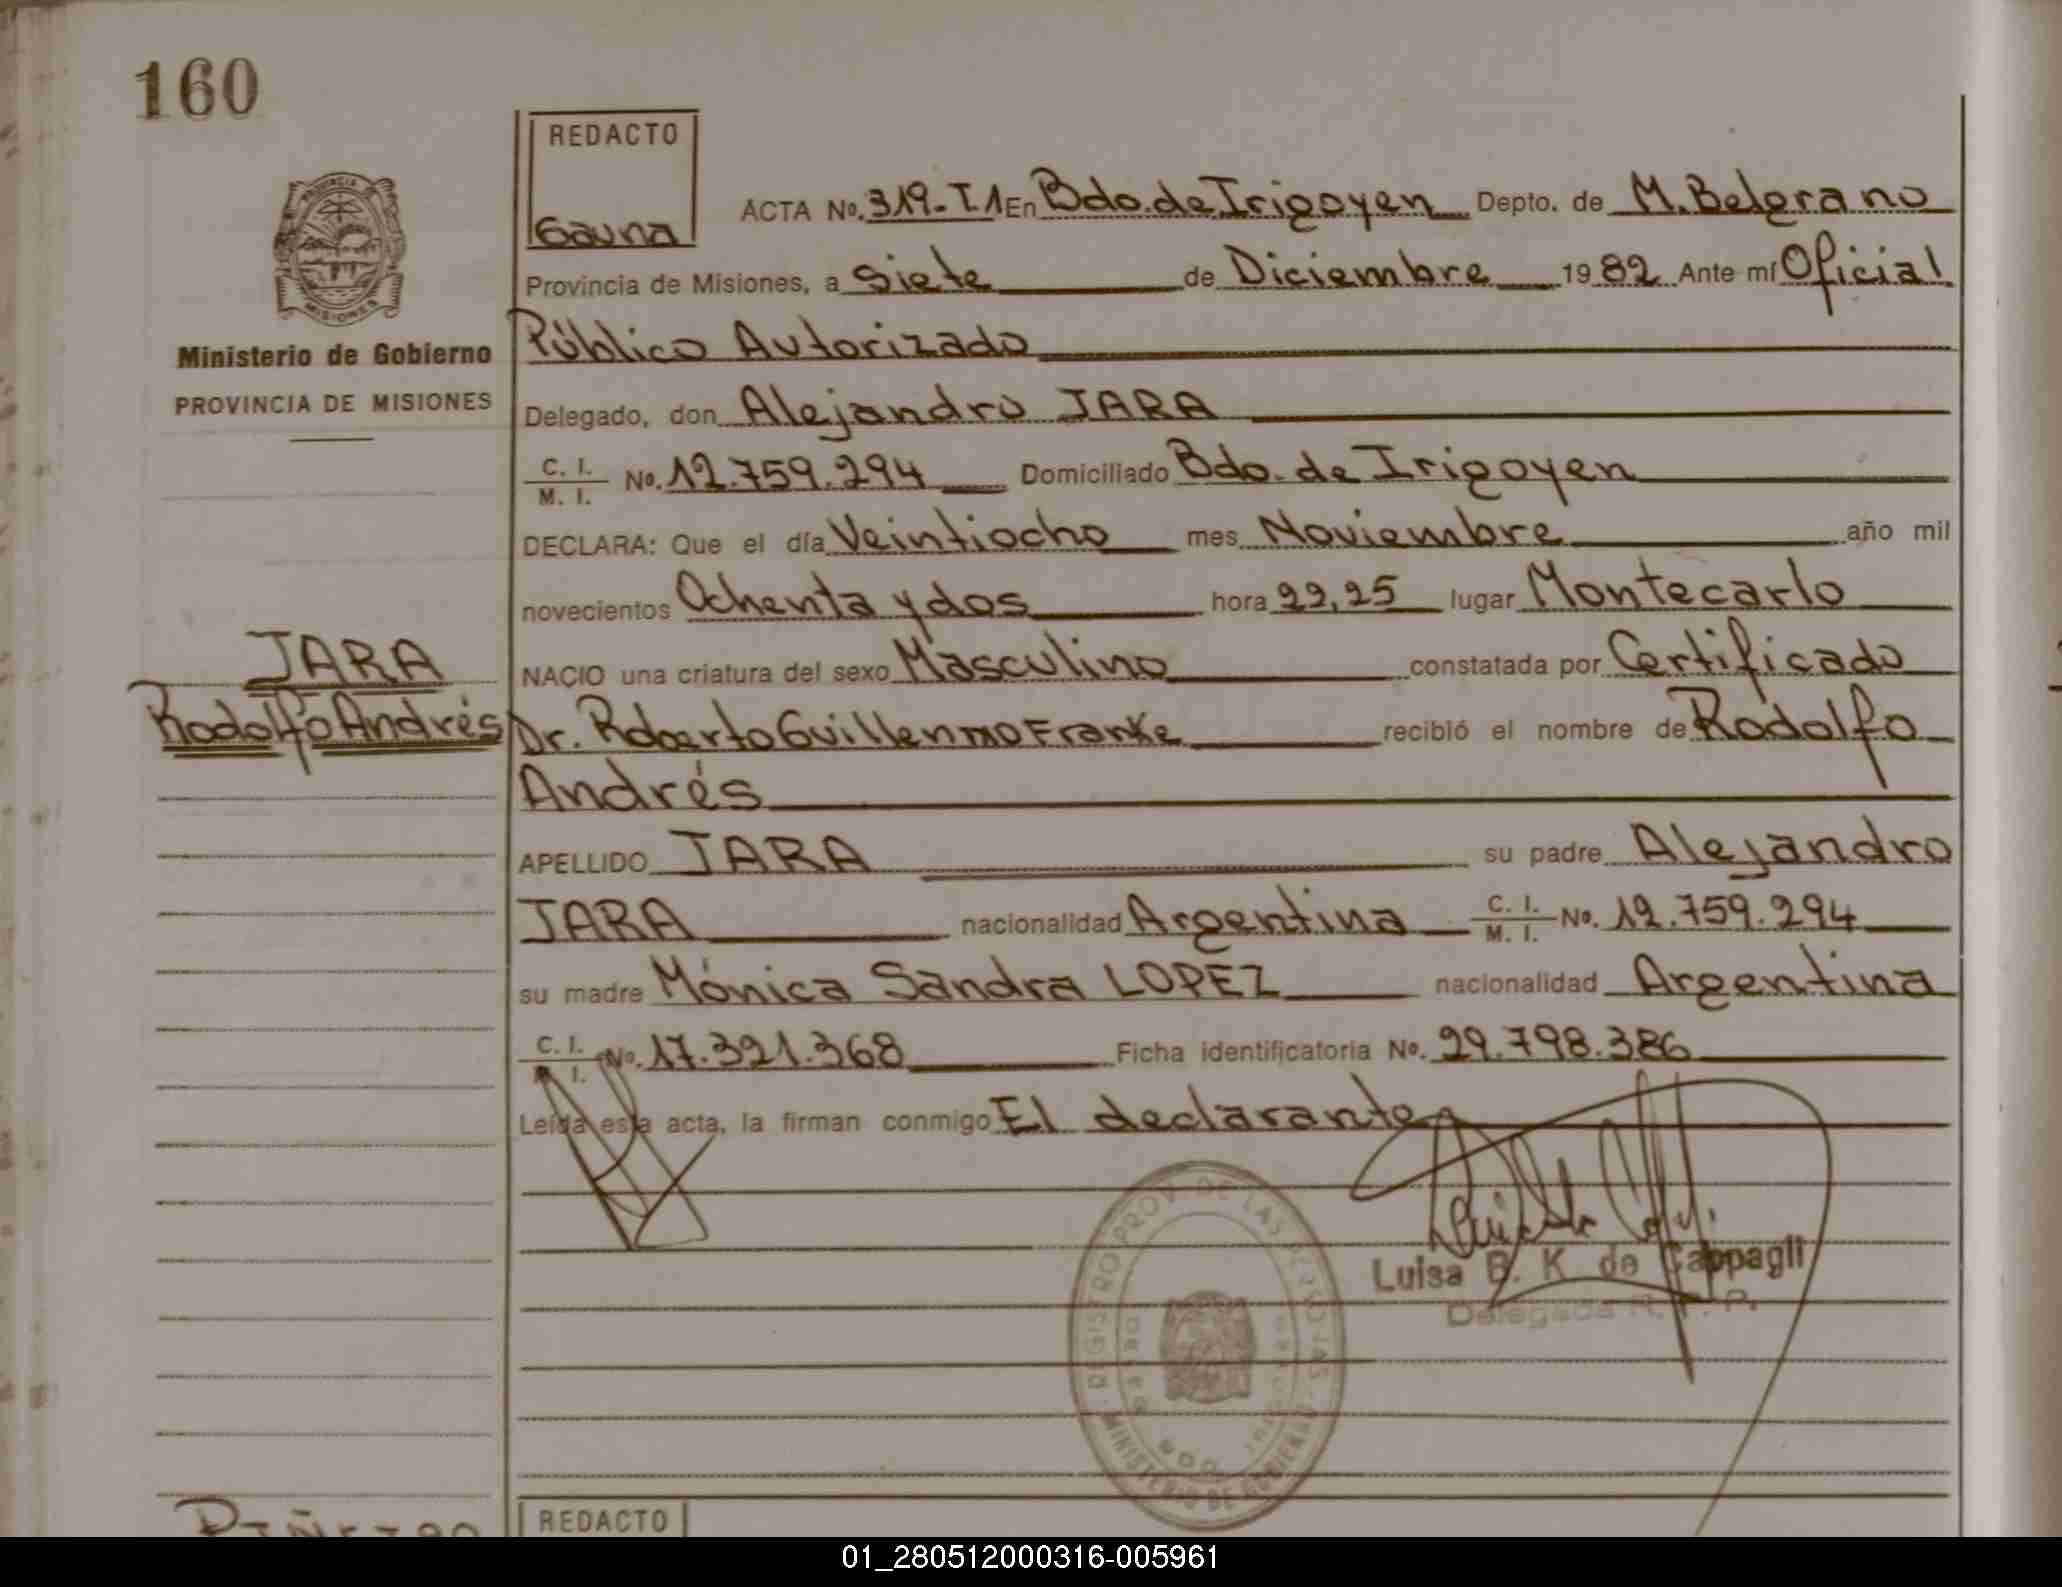 160
REDACTO
Gauna
PROVINCIA
MISIONES
Ministerio de Gobierno
PROVINCIA DE MISIONES
ACTA No. 319-T.1 En Bdo. de Irigoyen Depto. de M. Belgrano
Provincia de Misiones, a siete de Diciembre 1982 Ante mí Oficial
Público Autorizado
Delegado, don Alejandro JARA
C. I. / M. I. No. 12.759.294 Domiciliado Bdo. de Irigoyen
DECLARA: Que el día Veintiocho mes Noviembre año mil
novecientos Ochenta y dos hora 22,25 lugar Montecarlo
JARA
NACIO una criatura del sexo Masculino constatada por Certificado
Rodolfo Andrés
Dr. Roberto Guillenmo Franke recibió el nombre de Rodolfo
Andrés
APELLIDO JARA su padre Alejandro
JARA nacionalidad Argentina C. I. / M. I. No. 12.759.294
su madre Mónica Sandra LOPEZ nacionalidad Argentina
C. I. / I. No. 17.321.368 Ficha identificatoria No. 29.798.386
Leída esta acta, la firman conmigo El declarante
REGISTRO PROV. DE LAS PERSONAS
MINISTERIO DE GOBIERNO
Luisa B. K. de Cappagli
Delegada R. P. P.
REDACTO
01_280512000316-005961